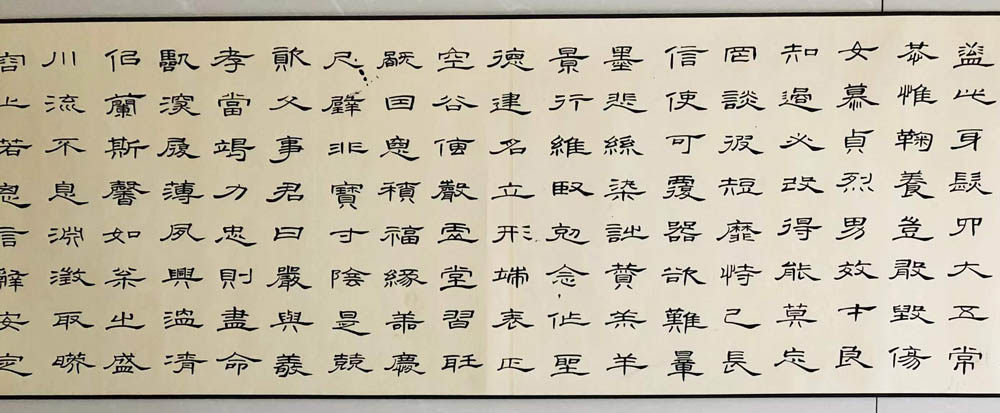 蓋此身髮四大五常
恭惟鞠養豈敢毀傷
女慕貞烈男效才良
知過必改得能莫忘
罔談彼短靡恃己長
信使可覆器欲難量
墨悲絲染詩贊羔羊
景行維賢剋念作聖
德建名立形端表正
空谷傳聲虛堂習聽
禍因惡積福緣善慶
尺璧非寶寸陰是競
資父事君曰嚴與敬
孝當竭力忠則盡命
臨深履薄夙興溫凊
似蘭斯馨如松之盛
川流不息淵澄取映
容止若思言辭安定